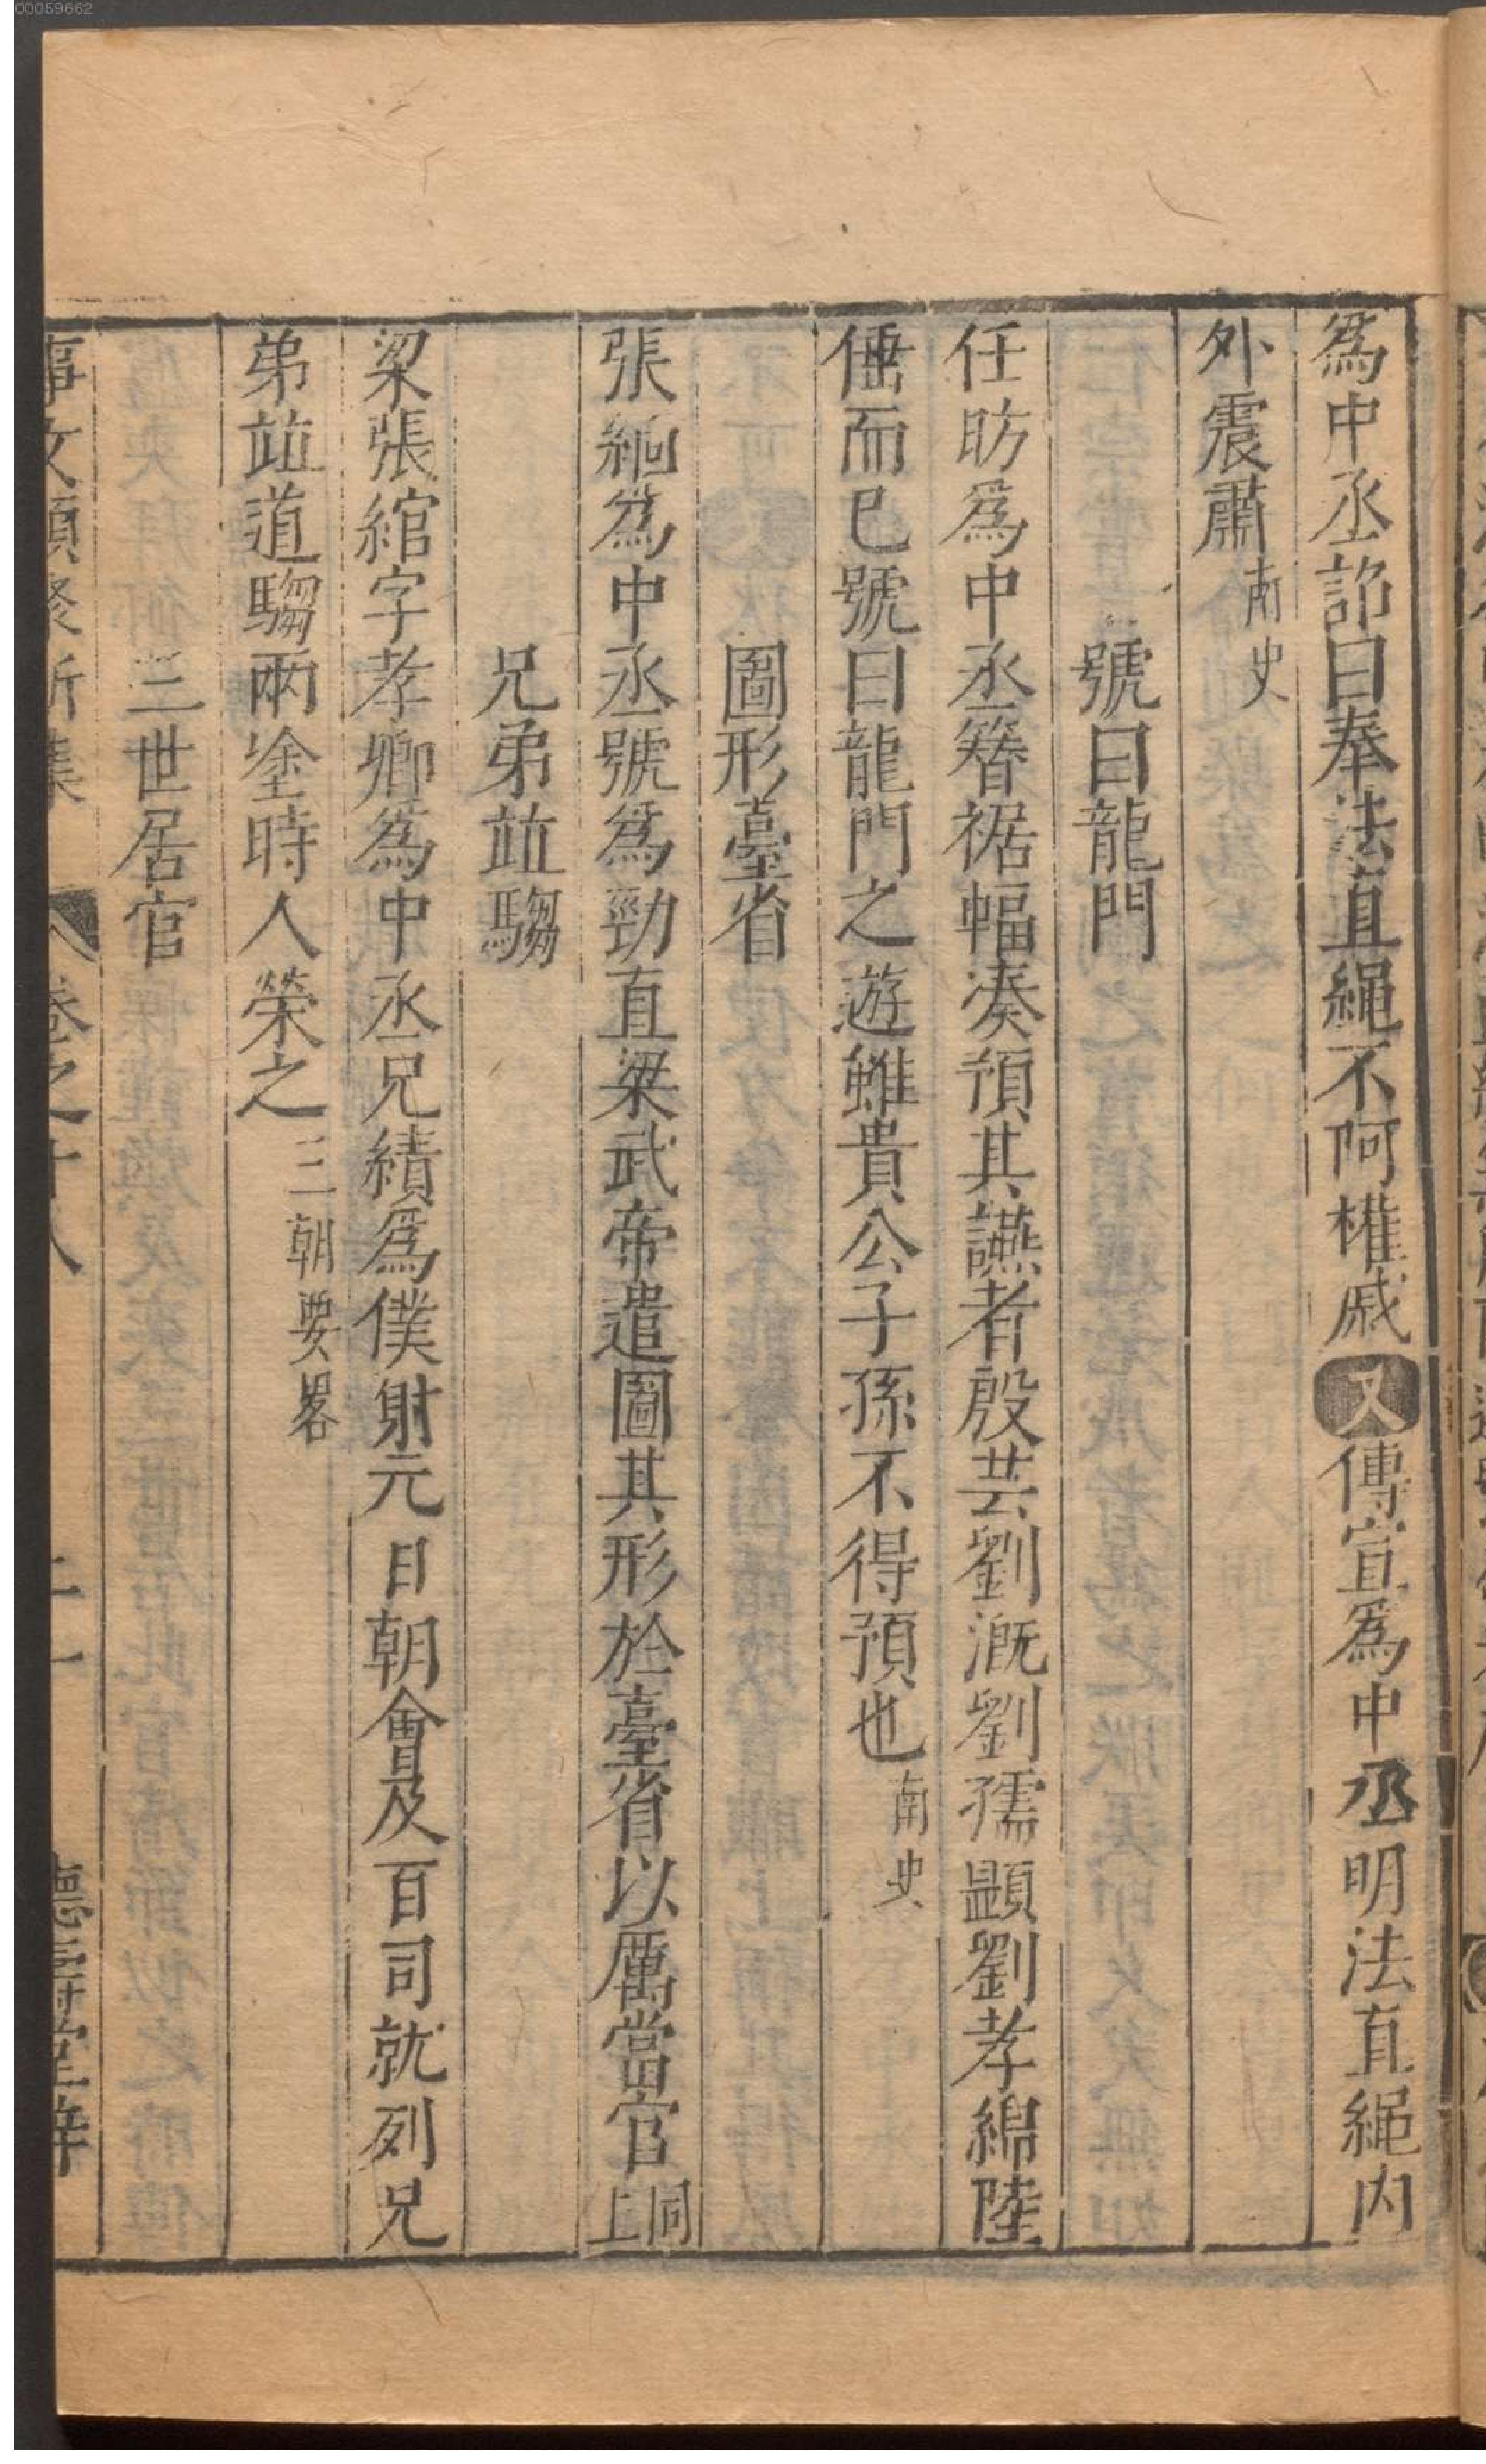 為中丞詔曰奉法直繩不阿權戚又傅宣為中丞明法直繩内
外震肅南史
號曰龍門
任昉為中丞簪裾輻湊預其讌者殷芸劉溉劉孺顯劉孝綽陸
倕而已號曰龍門之遊雖貴公子孫不得預也南史
圖形臺省
張緬為中丞號為勁直梁武帝遣圖其形於臺省以厲當官同上
兄弟並騶
梁張綰字孝卿為中丞兄績為僕射元日朝會及百司就列兄
弟並道騶兩塗時人榮之三朝要畧
三世居官
事文類聚新集 卷之十八 二十一 德壽堂梓
00059662